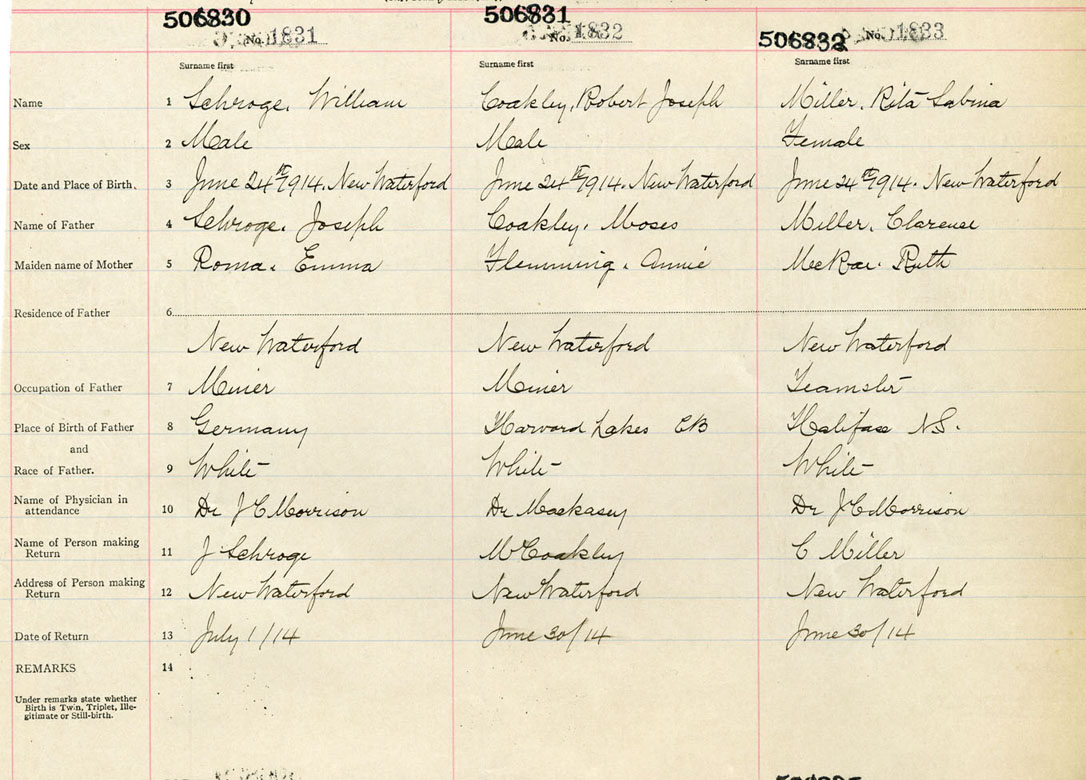 506830 506831 506832
No. 1831 No. 1832 No. 1833
Surname first Surname first Surname first
Name 1 Schroge, William Coakley, Robert Joseph Miller, Rita Sabina
Sex 2 Male Male Female
Date and Place of Birth. 3 June 24th 1914. New Waterford June 24th 1914. New Waterford June 24th 1914. New Waterford
Name of Father 4 Schroge, Joseph Coakley, Moses Miller, Clarence
Maiden name of Mother 5 Roma, Emma Flemming, Annie MacRae. Ruth
Residence of Father 6
New Waterford New Waterford New Waterford
Occupation of Father 7 Miner Miner Teamster
Place of Birth of Father 8 Germany Harvard Lakes CB Halifax N.S.
and
Race of Father. 9 White White White
Name of Physician in
attendance 10 Dr J C Morrison Dr Mackasey Dr J C Morrison
Name of Person making
Return 11 J Schroge M Coakley C Miller
Address of Person making
Return 12 New Waterford New Waterford New Waterford
Date of Return 13 July 1/14 June 30/14 June 30/14
REMARKS 14
Under remarks state whether
Birth is Twin, Triplet, Ille-
gitimate or Still-birth.